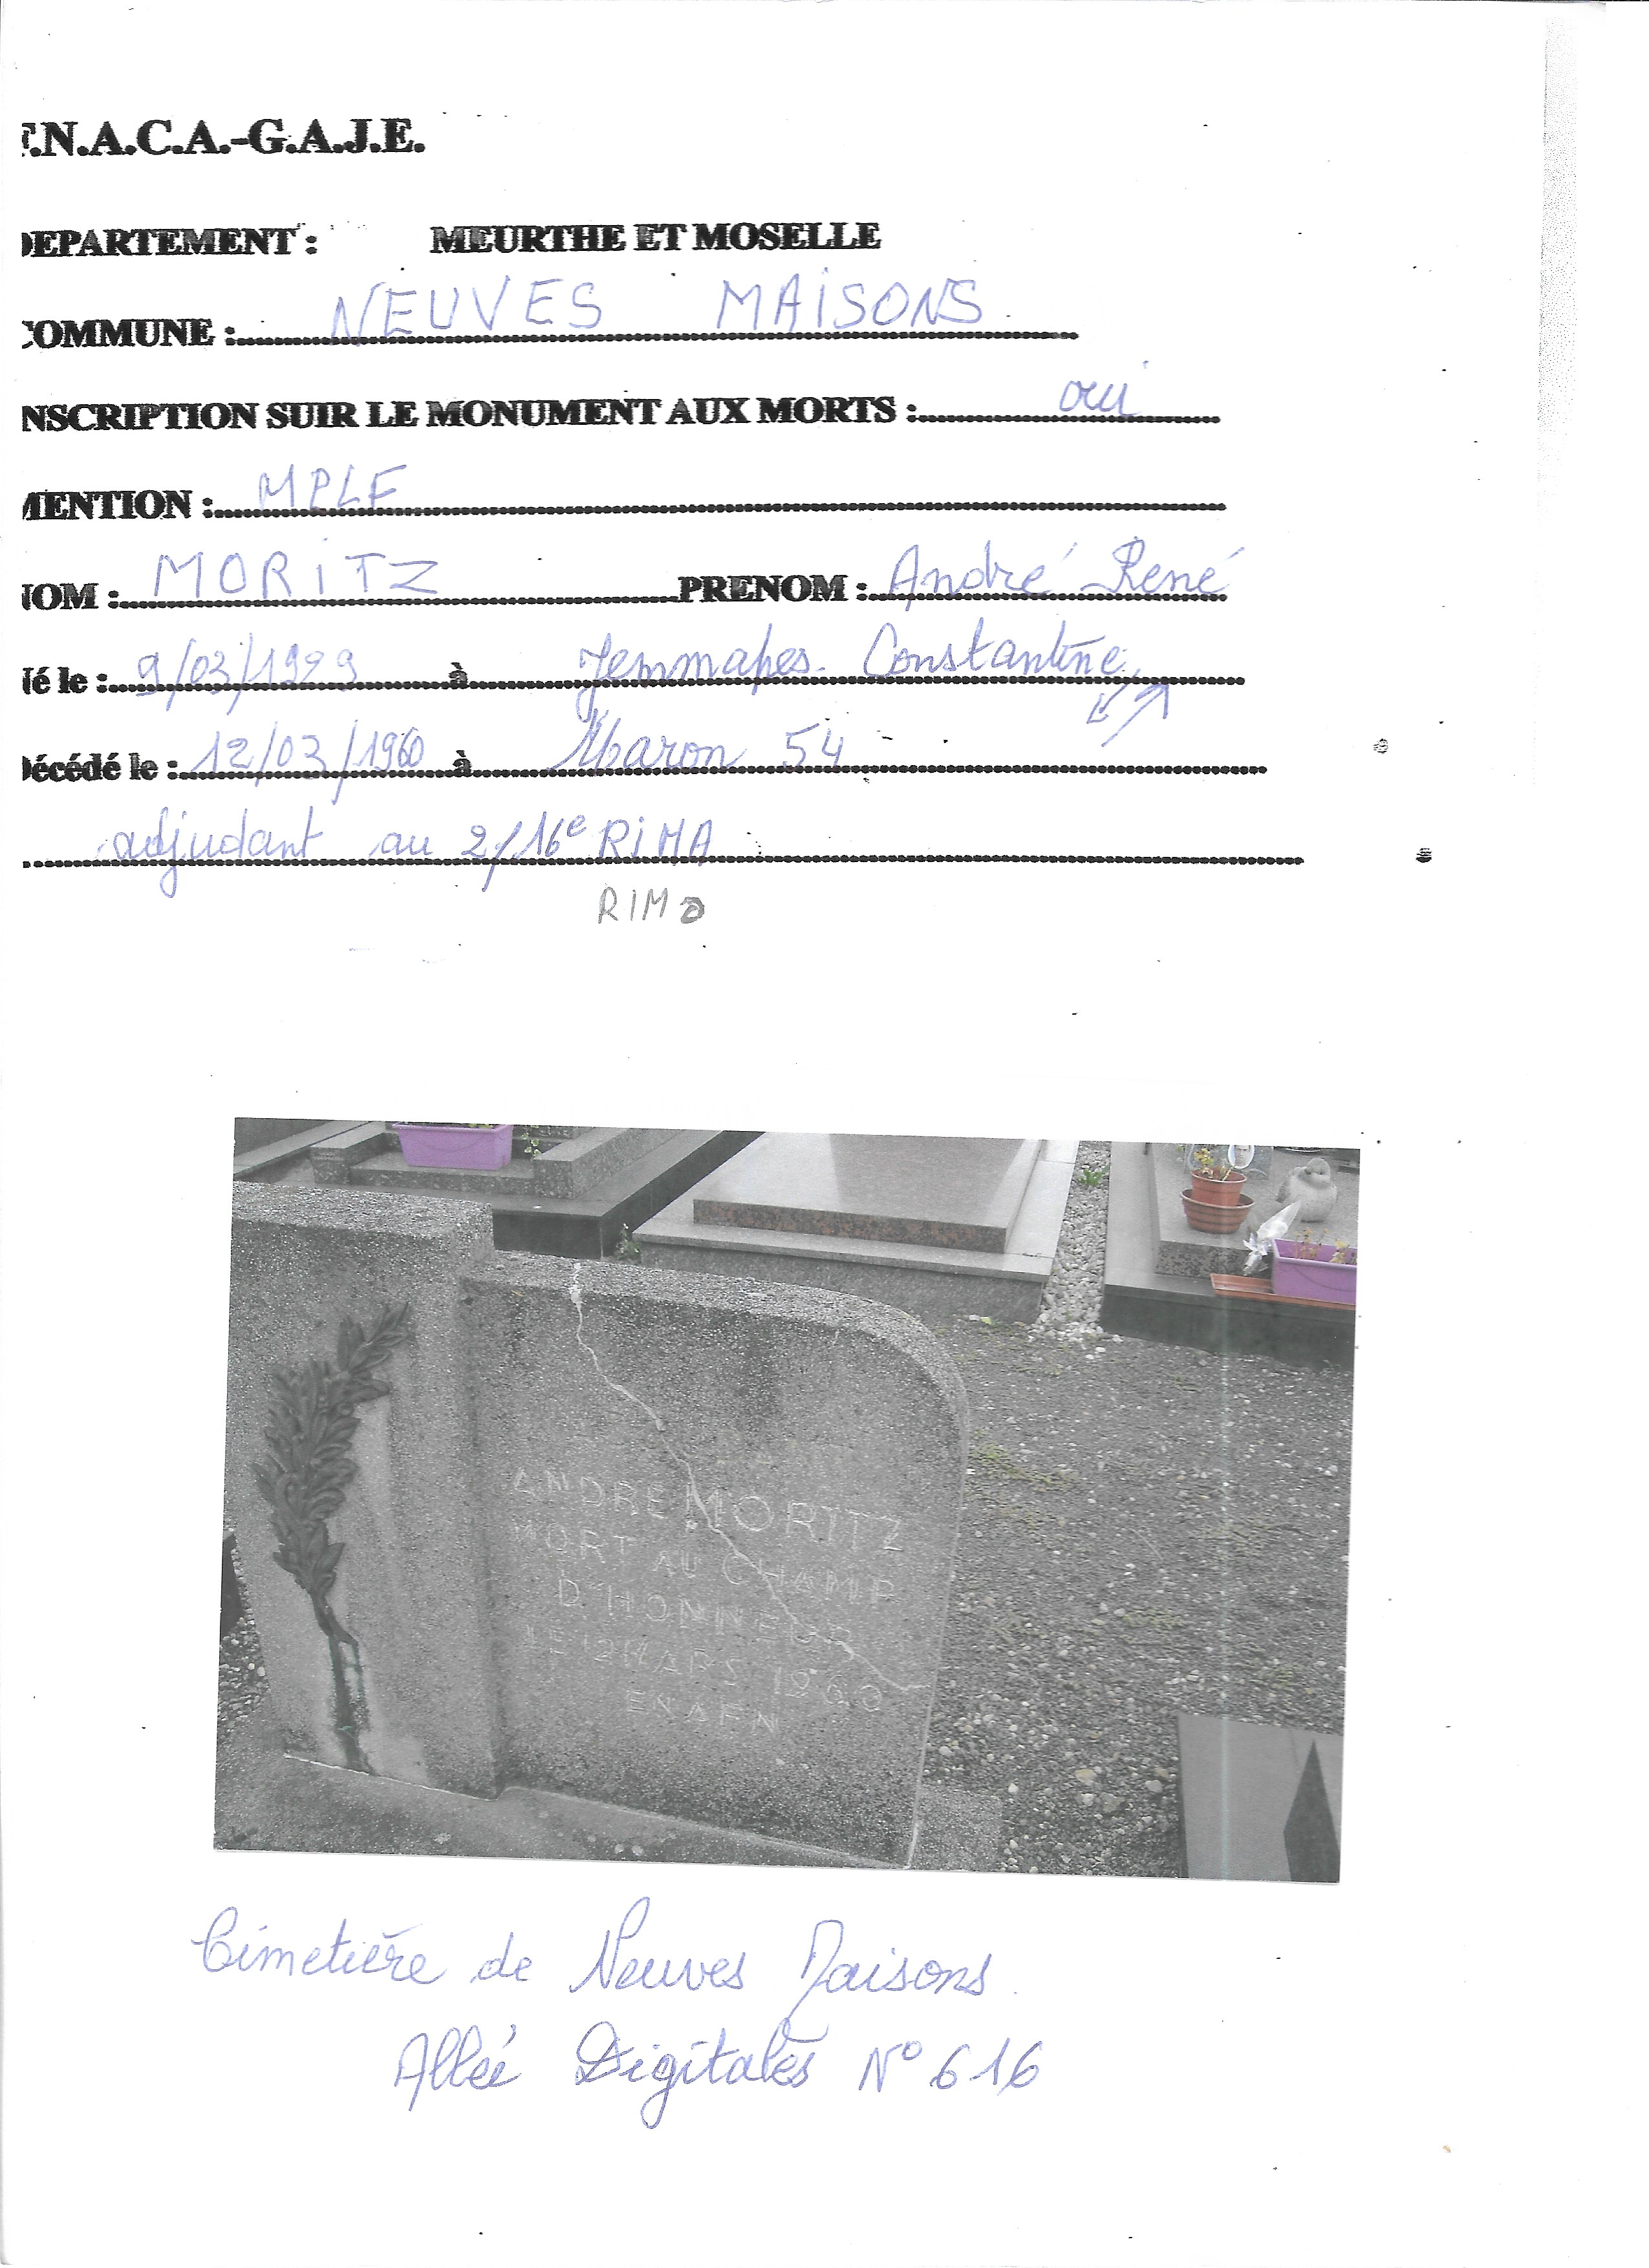 F.N.A.C.A.-G.A.J.E.
DEPARTEMENT : MEURTHE ET MOSELLE
COMMUNE : NEUVES MAISONS
INSCRIPTION SUIR LE MONUMENT AUX MORTS : oui
MENTION : MPLF
NOM : MORITZ PRENOM : André René
Né le : 9/03/1929 à Jemmapes. Constantine
Décédé le : 12/03/1960 à Maron 54
adjudant au 2/16e RIMA
RIMa
ANDRE MORITZ
MORT AU CHAMP
D'HONNEUR
LE 12 MARS 1960
EN AFN
Cimetière de Neuves Maisons
Allée Digitales N° 616